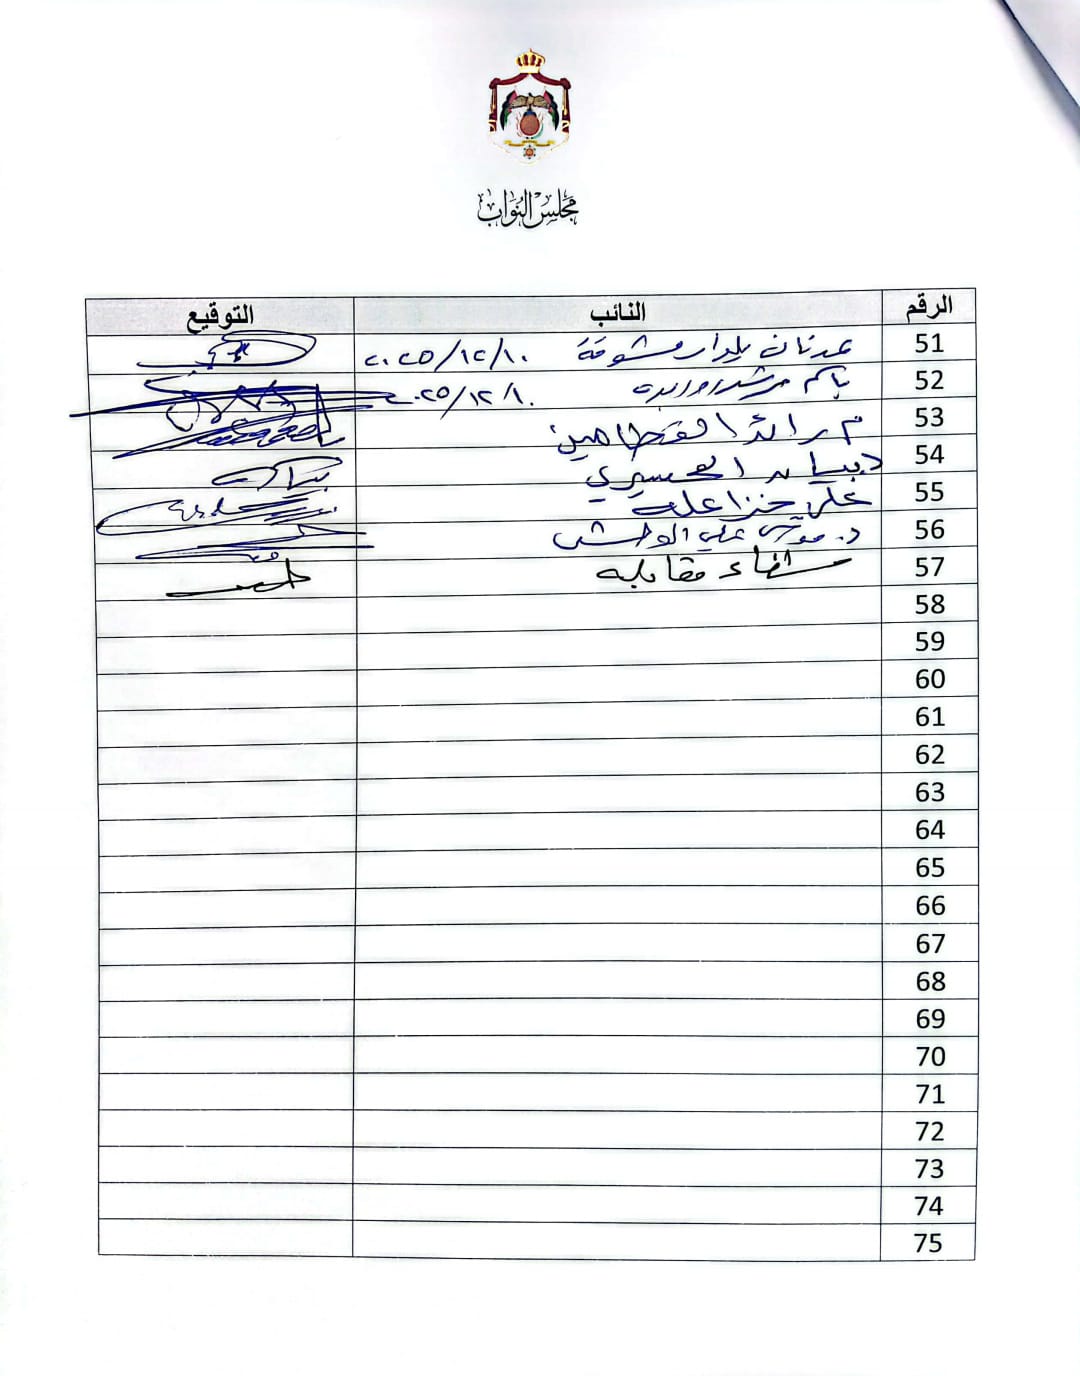 مجلس النواب
الرقم النائب التوقيع
51 عدنان يلدار مشوقة ٢٠٢٥/١٢/١٠
52 باسم ٢٠٢٥/١٢/١٠
53 م رائد القطامين
54 د. بيان المحسيري
55 علي خزاعله
56 د. علي الوحش
57 شفاء مقابله
58
59
60
61
62
63
64
65
66
67
68
69
70
71
72
73
74
75